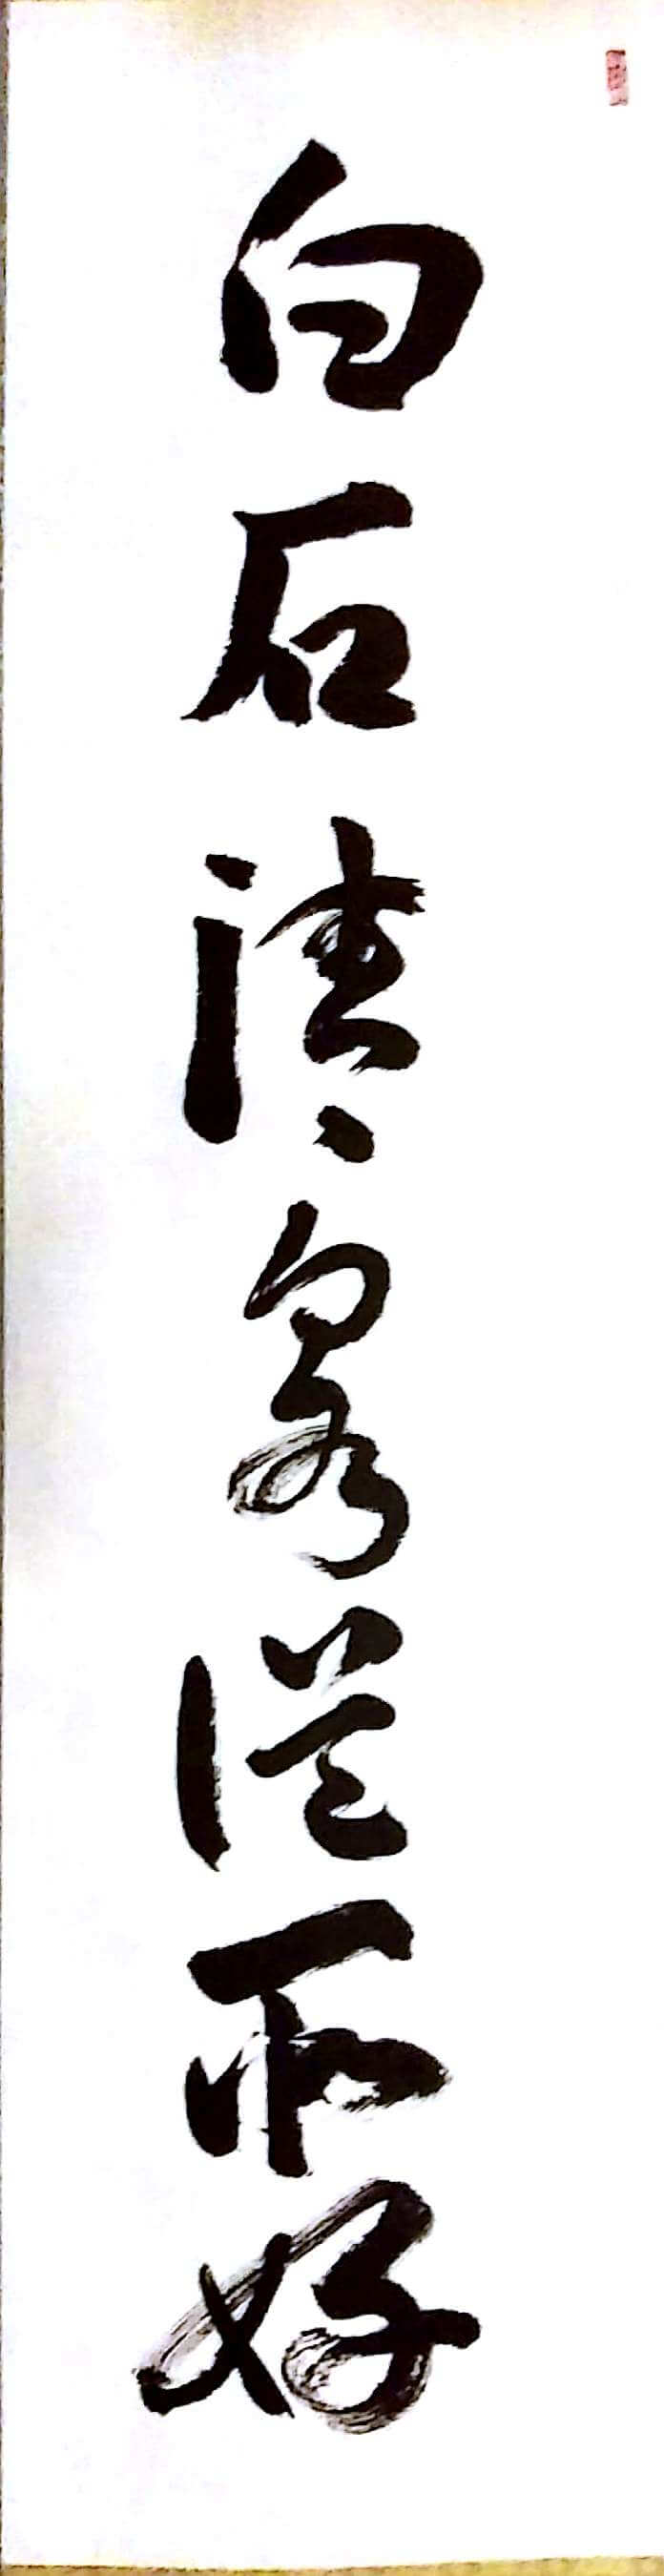 白石清泉從所好